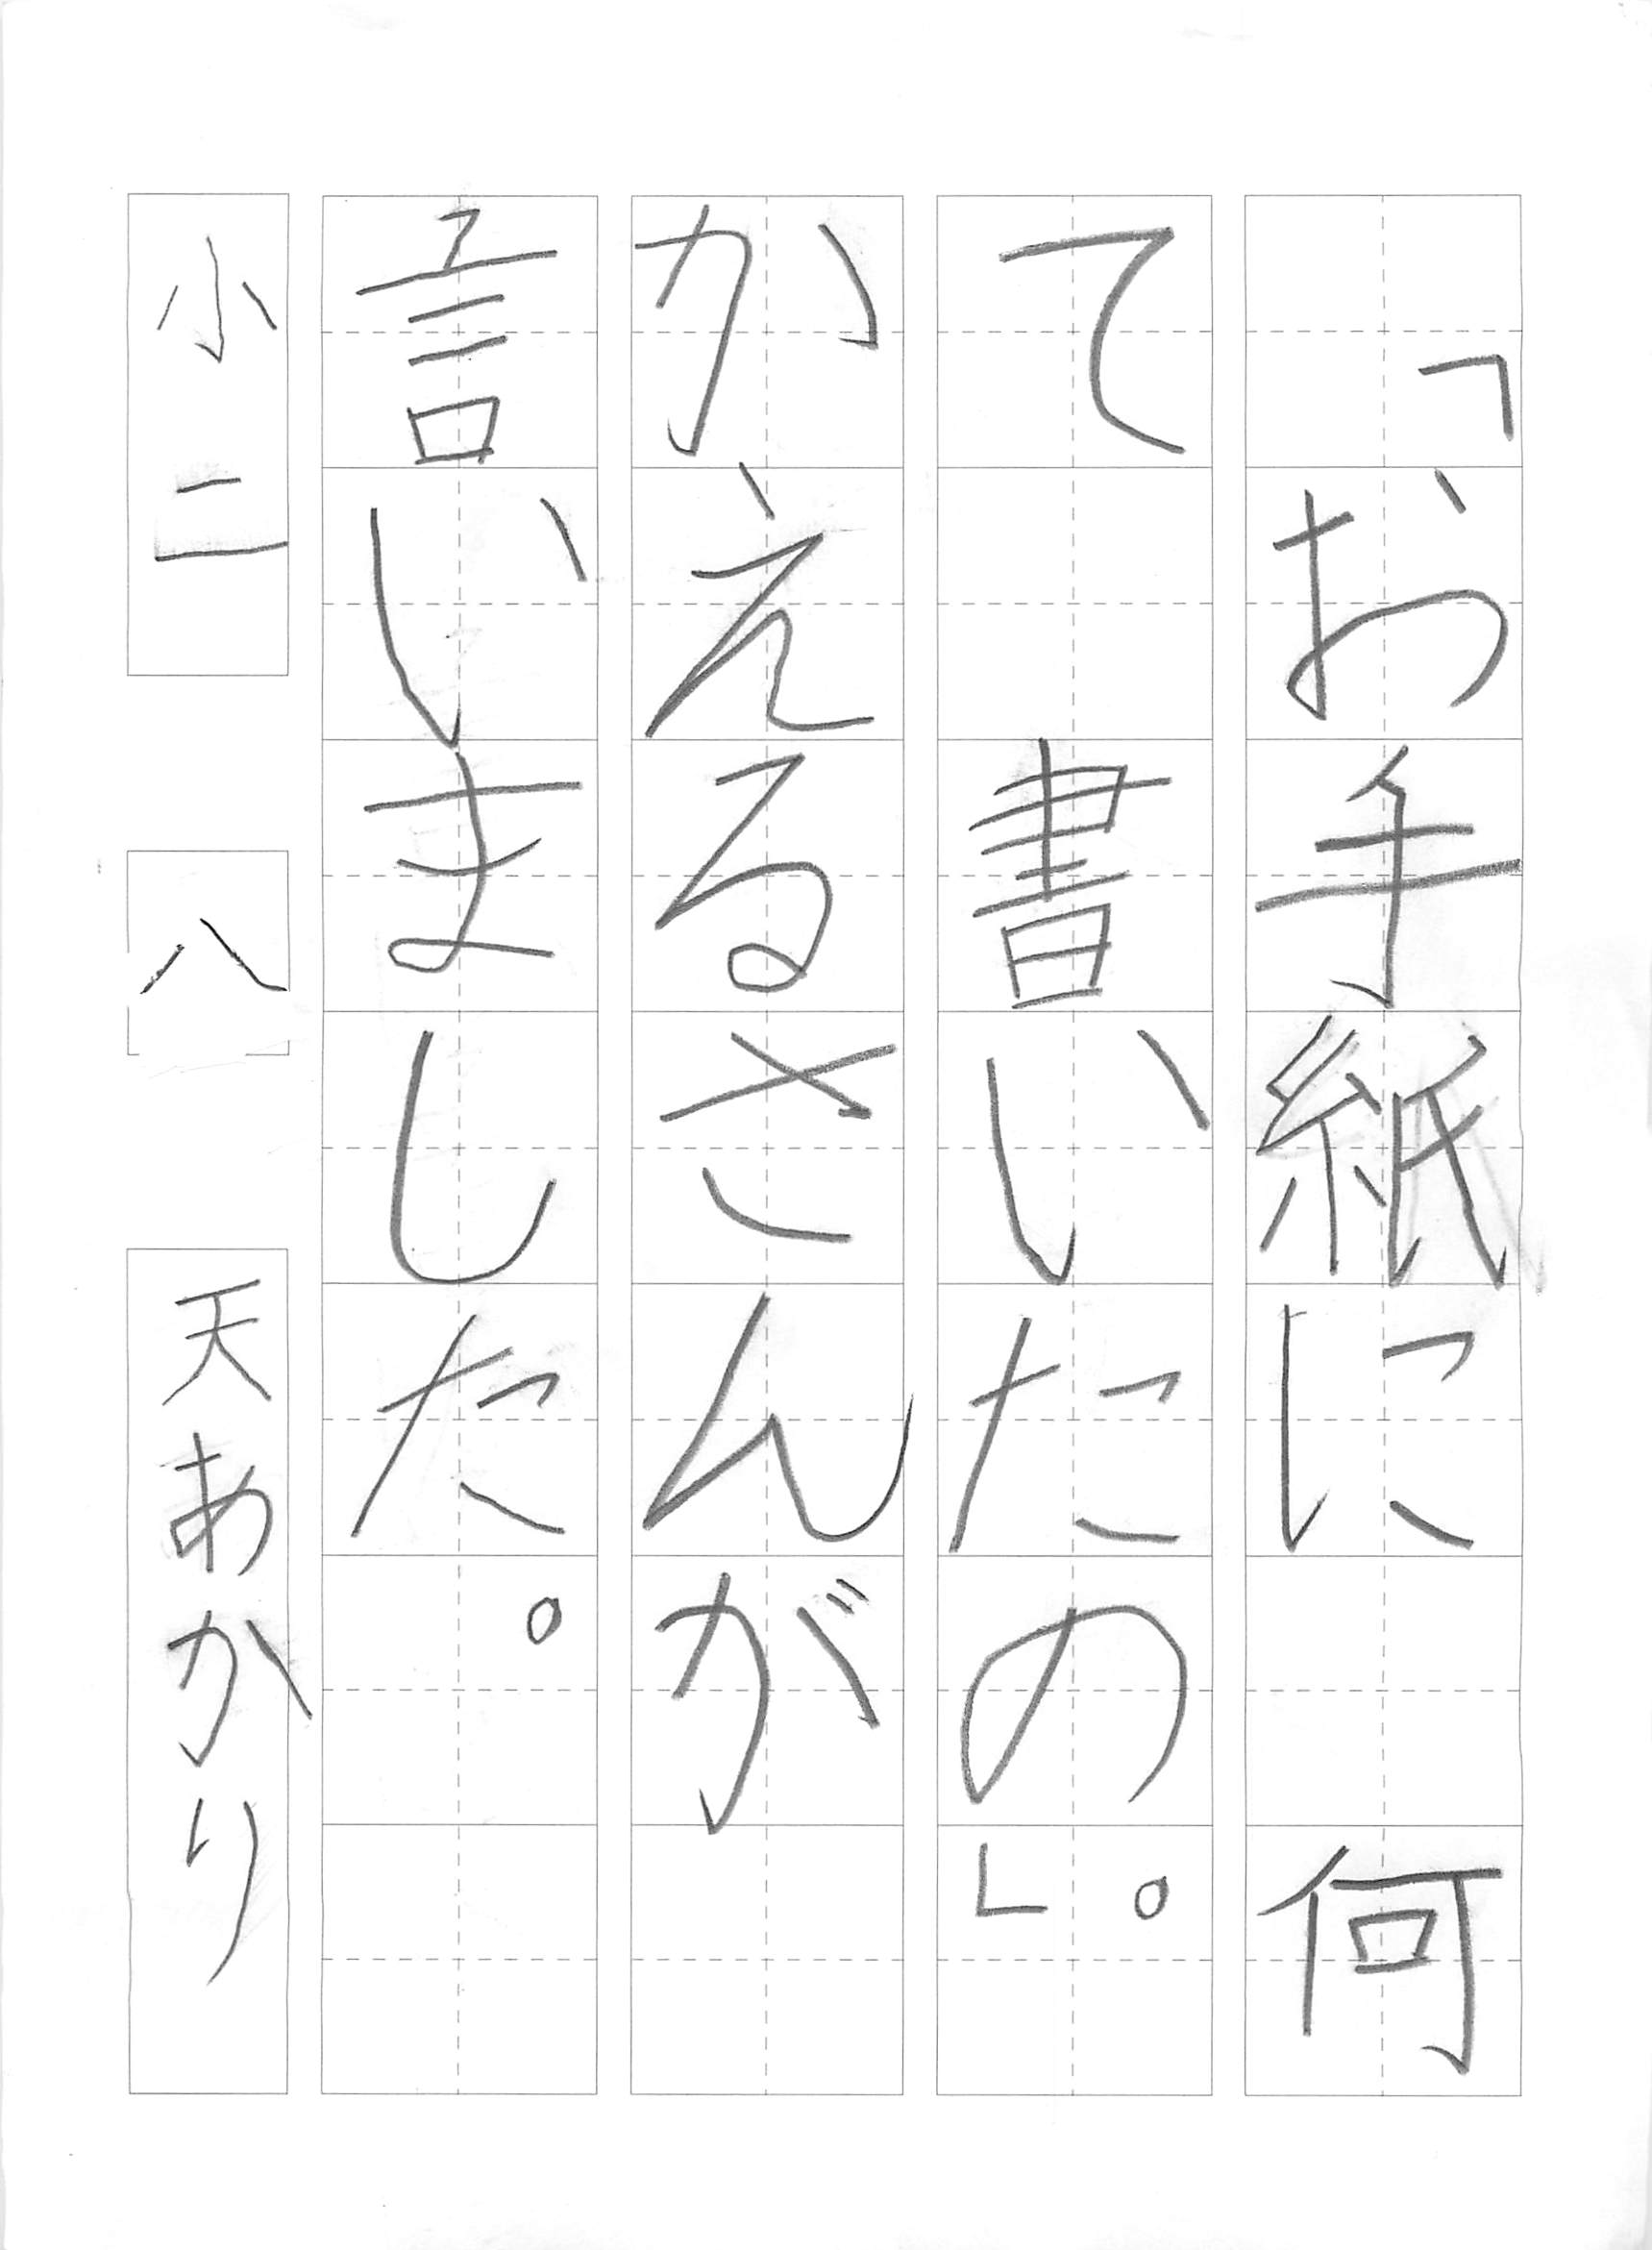 「お手紙に　何
て　書いたの。」
かえるさんが
言いました。
小二　八　天あかり